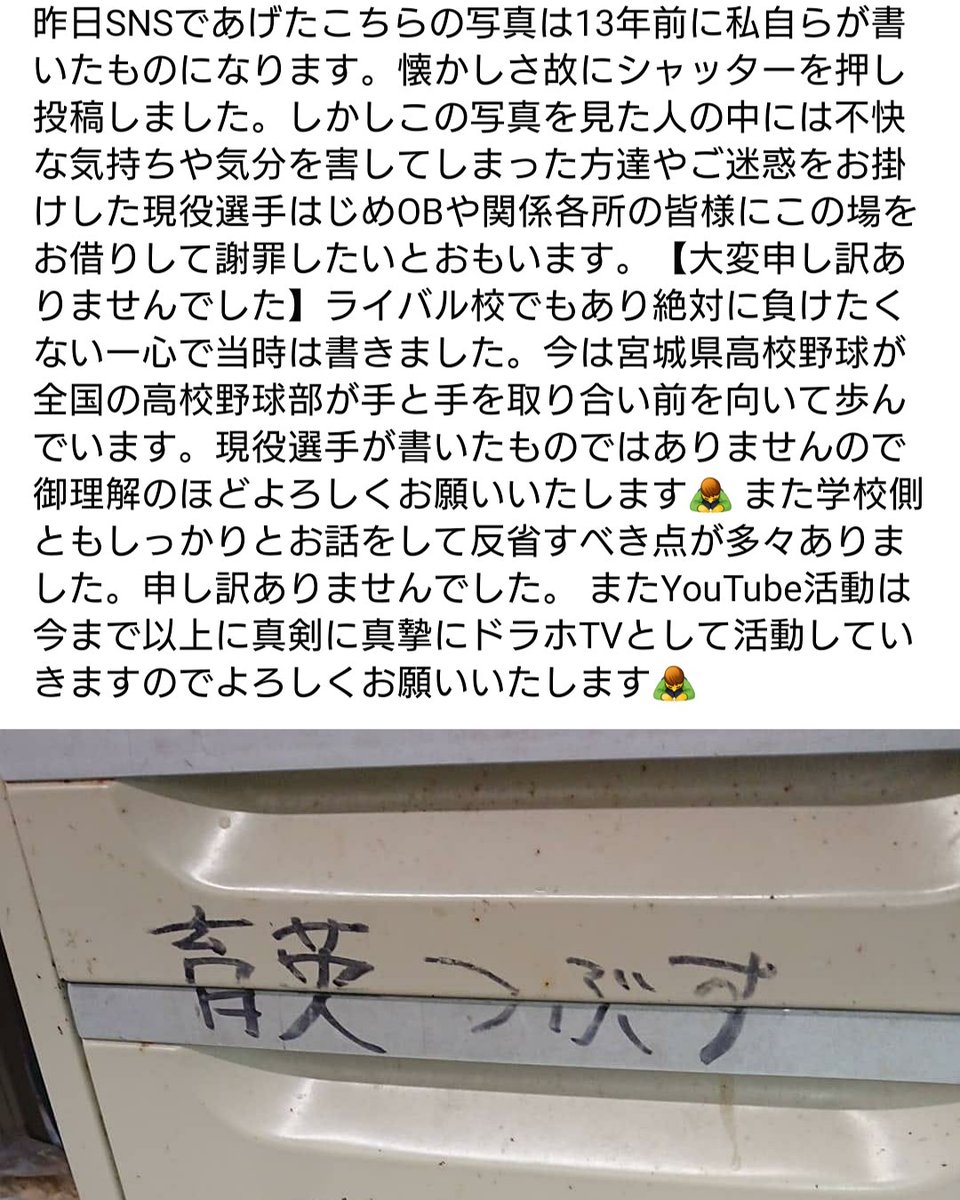 昨日SNSであげたこちらの写真は13年前に私自らが書
いたものになります。懐かしさ故にシャッターを押し
投稿しました。しかしこの写真を見た人の中には不快
な気持ちや気分を害してしまった方達やご迷惑をお掛
けした現役選手はじめOBや関係各所の皆様にこの場を
お借りして謝罪したいとおもいます。【大変申し訳あ
りませんでした】ライバル校でもあり絶対に負けたく
ない一心で当時は書きました。今は宮城県高校野球が
全国の高校野球部が手と手を取り合い前を向いて歩ん
でいます。現役選手が書いたものではありませんので
御理解のほどよろしくお願いいたします🙇 また学校側
ともしっかりとお話をして反省すべき点が多々ありま
した。申し訳ありませんでした。 またYouTube活動は
今まで以上に真剣に真摯にドラホTVとして活動してい
きますのでよろしくお願いいたします🙇
育英つぶす